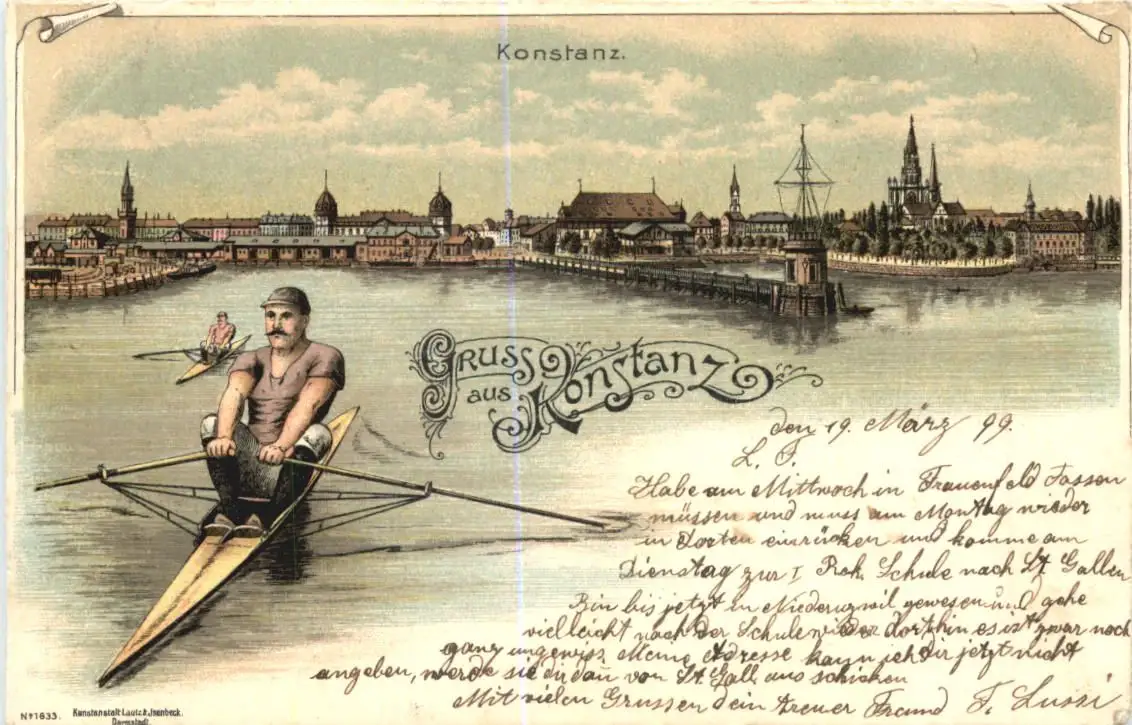 Konstanz.
Gruss
aus Konstanz
den 19. März 99.
L. F.
Habe am Mittwoch in Frauenfeld Fassen
müssen und muss am Montag wieder
in dorten einrücken und komme am
Dienstag zur I Rek. Schule nach St. Gallen
Bin bis jetzt in Niederuzwil gewesen und gehe
vielleicht nach der Schule wieder dorthin es ist zwar noch
ganz ungewiss. Meine Adresse kann ich dir jetzt nicht
angeben, werde sie dir dan von St. Gall aus schicken
Mit vielen Grussen dein treuer Freund F. Lussi
No 1633. Kunstanstalt Lautz & Jsenbeck.
Darmstadt.